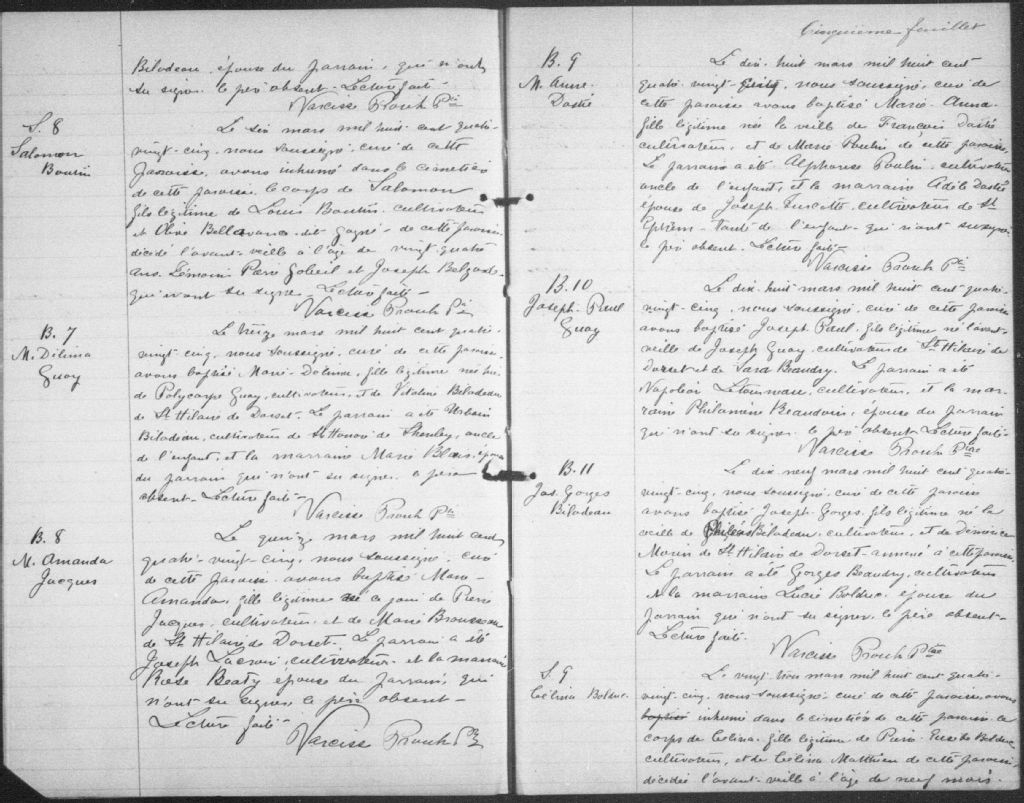 Bilodeau, épouse du parrain, qui n'ont
su signer. le père absent. Lecture faite.
Narcisse Proulx Ptre
S. 8
Salomon
Boutin
Le six mars mil huit cent quatre-
vingt-cinq, nous soussigné, curé de cette
paroisse, avons inhumé dans le cimetière
de cette paroisse, le corps de Salomon
fils légitime de Louis Boutin, cultivateur
et Olive Bellavance dit Gagné de cette paroisse
décédé l'avant-veille à l'âge de vingt quatre
ans. Témoins Pierre Gobeil et Joseph
qui n'ont su signer. Lecture faite.
Narcisse Proulx Ptre
B. 7
M. Délima
Guay
Le treize mars mil huit cent quatre-
vingt-cinq, nous soussigné, curé de cette paroisse
avons baptisé Marie-Délima, fille légitime née hier
de Polycarpe Guay, cultivateur, et de Vitaline Bilodeau
de St Hilaire de Dorset. Le parrain a été Urbain
Bilodeau, cultivateur de St Honoré de Shenley, oncle
de l'enfant, et la marraine Marie Blais, épouse
du parrain qui n'ont su signer. le père
absent. Lecture faite.
Narcisse Proulx Ptre
B. 8
M. Amanda
Jacques
Le quinze mars mil huit cent
quatre-vingt-cinq, nous soussigné, curé
de cette paroisse, avons baptisé Marie-
Amanda, fille légitime née ce jour de Pierre
Jacques, cultivateur, et de Marie Brousseau
de St Hilaire de Dorset. Le parrain a été
Joseph Lacroix, cultivateur, et la marraine
Rose Beaty épouse du parrain, qui
n'ont su signer le père absent-
Lecture faite-
Narcisse Proulx Ptre
Cinquième feuillet
B. 9
M. Anna
Dostie
Le dix-huit mars mil huit cent
quatre-vingt-cinq, nous soussigné, curé de
cette paroisse avons baptisé Marie-Anna
fille légitime née la veille de François Dostie
cultivateur, et de Marie Poulin de cette paroisse.
Le parrain a été Alphonse Poulin, cultivateur
oncle de l'enfant, et la marraine Adèle Dostie
épouse de Joseph Turcotte, cultivateur de St
Ephrem- tante de l'enfant qui n'ont su signer.
le père absent. Lecture faite-
Narcisse Proulx Ptre
B. 10
Joseph-Paul
Guay
Le dix-huit mars mil huit cent quatre-
vingt-cinq, nous soussigné, curé de cette paroisse
avons baptisé Joseph Paul, fils légitime né l'avant
veille de Joseph Guay, cultivateur de St Hilaire de
Dorset et de Sara Beaudry. Le parrain a été
Napoléon Létourneau, cultivateur, et la mar-
raine Philomène Beaudoin, épouse du parrain
qui n'ont su signer. le père absent. Lecture faite-
Narcisse Proulx Ptre
B. 11
Jos. Gorges
Bilodeau
Le dix-neuf mars mil huit cent quatre-
vingt-cinq, nous soussigné, curé de cette paroisse
avons baptisé Joseph-Gorges, fils légitime né la
veille de Philéas Bilodeau, cultivateur, et de
Morin de St Hilaire de Dorset- annexé à cette paroisse.
Le parrain a été Gorges Beaudry, cultivateur
et la marraine Lucie Bolduc, épouse du
parrain qui n'ont su signer, le père absent-
Lecture faite-
Narcisse Proulx Ptre
S. 9
Célina Bolduc.
Le vingt-trois mars mil huit cent quatre-
vingt-cinq, nous soussigné, curé de cette paroisse, avons
baptisé inhumé dans le cimetière de cette paroisse le
corps de Célina, fille légitime de Pierre Eusèbe Bolduc
cultivateur, et de Célina Matthieu de cette paroisse,
décédée l'avant-veille à l'âge de neuf mois.